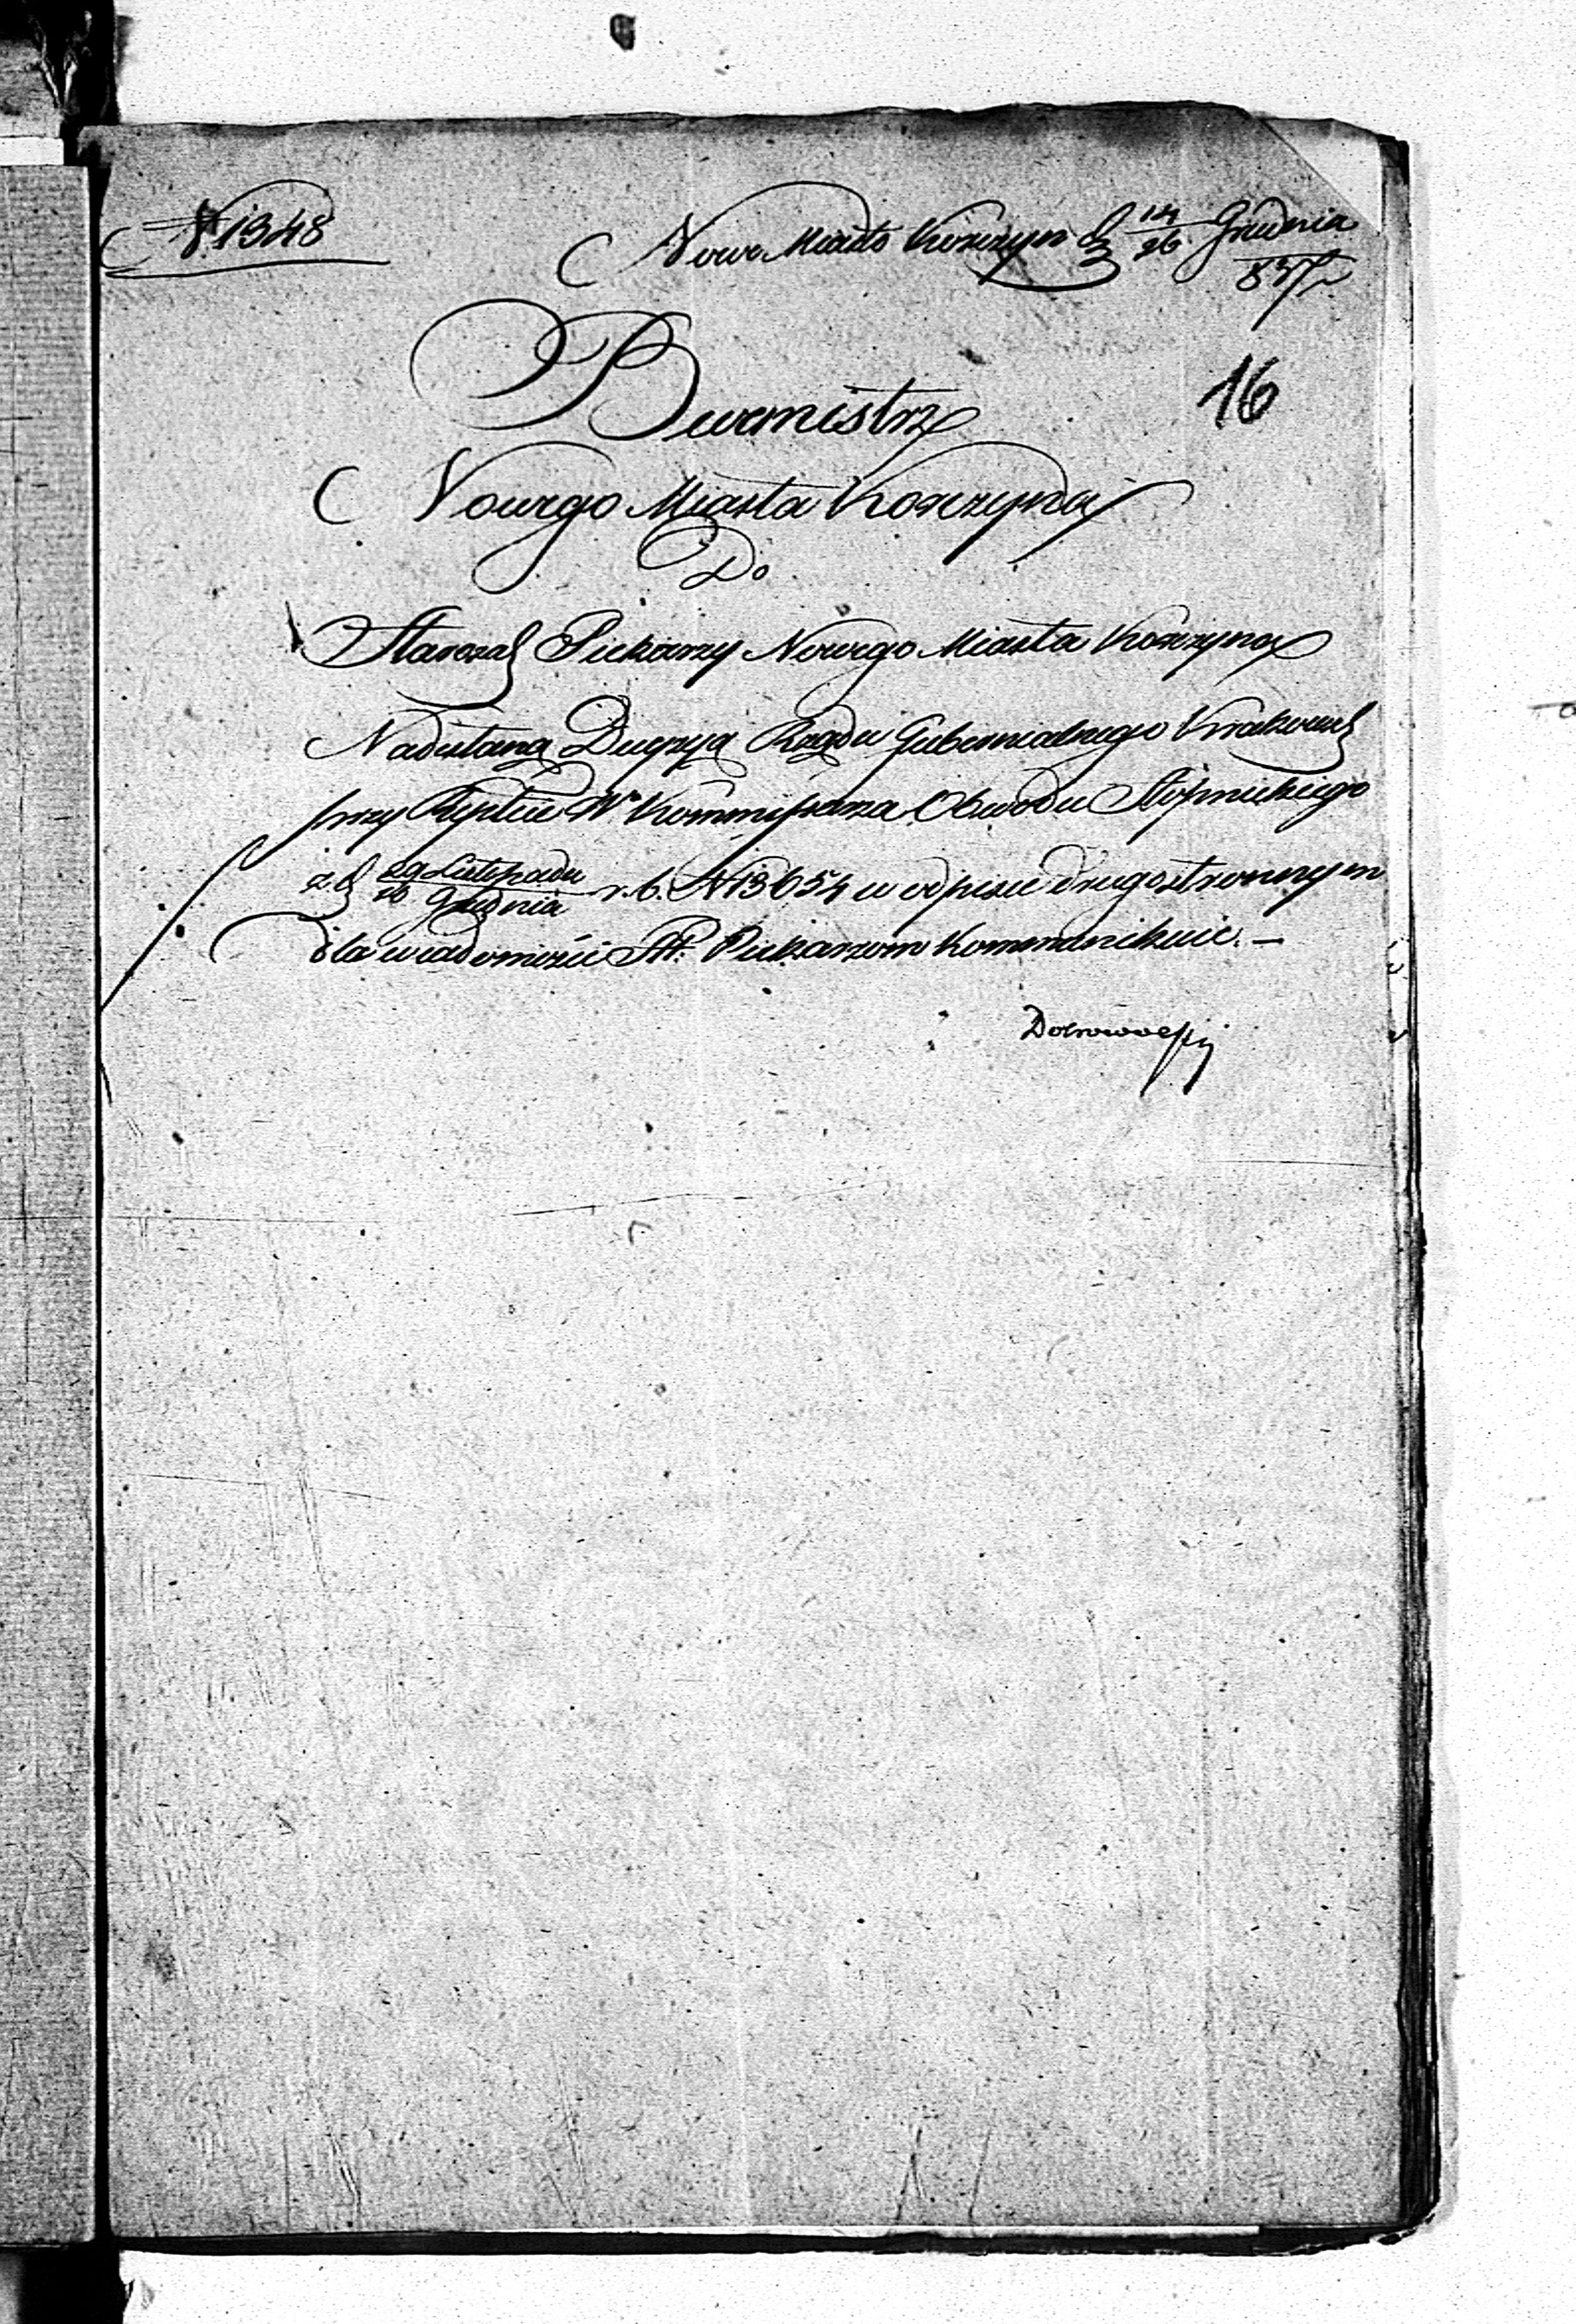 N 1348
Nowe Miasto Korczyn d 14/26 Grudnia
837 r
16
Burmistrz
Nowego Miasta Korczyna
Do
Starszych Piekarzy Nowego Miasta Korczyna
Nadesłaną Decyzyą Rządu Gubernialnego Krakowsk
przy Rypisie W Kommissarza Obwodu Stopnickiego
z d 29 Listopada / Grudnia r. b. N 13654 w odpisie drugostronnym
dla wiadomości St. Piekarzom Kommunikuie. —